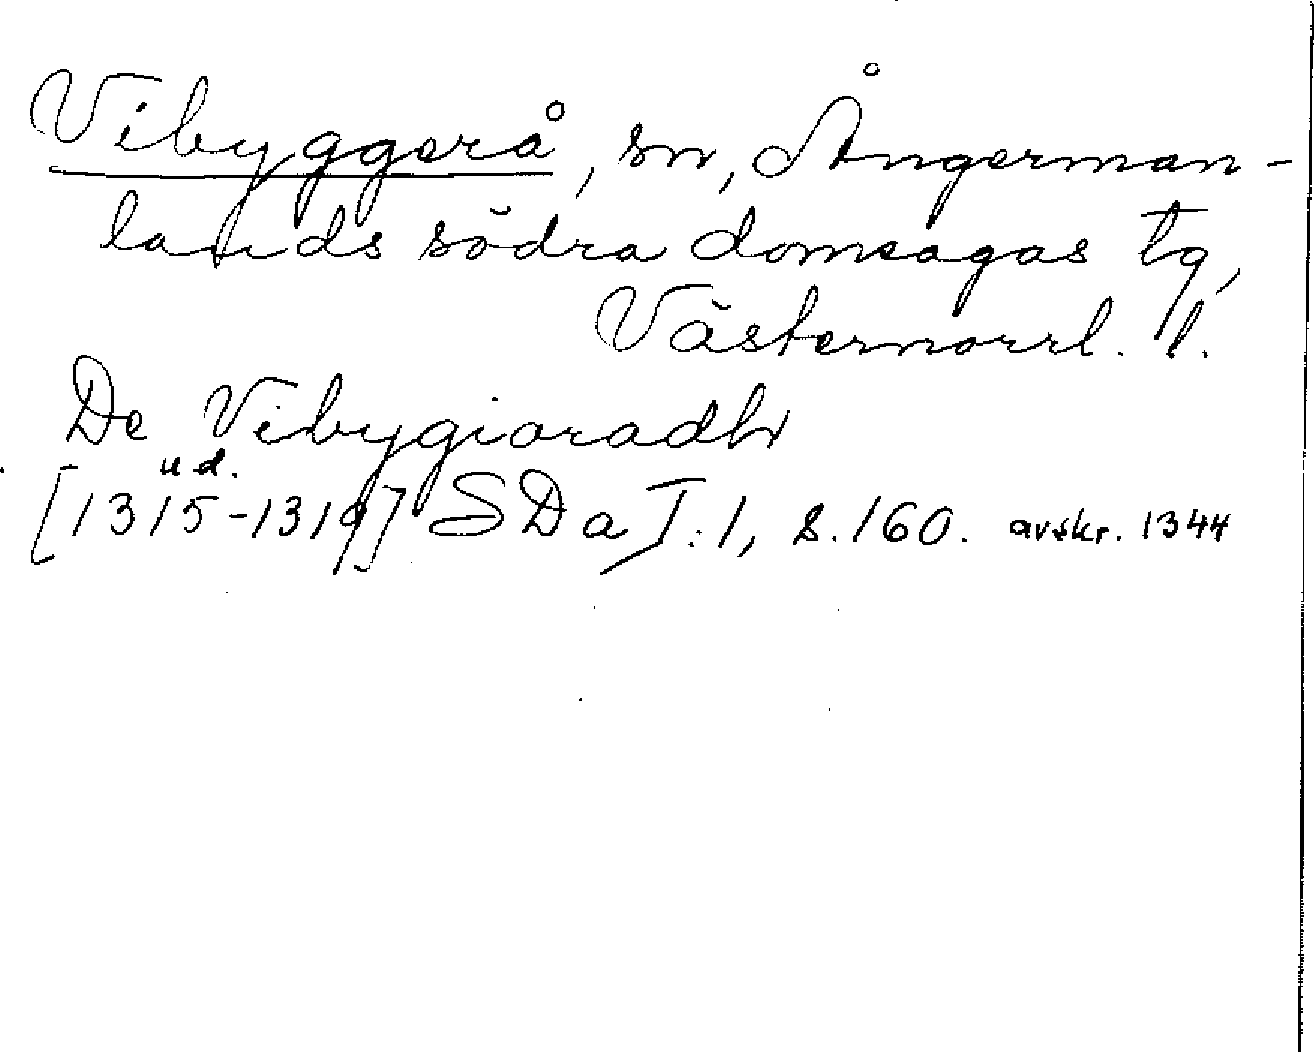 Vibyggerå, sn, Ångerman-
lands södra domsagas tg,
Västernorrl. l.
De Vibygiaradh
u d.
[1315-1319] SDa I:1, s. 160. avskr. 1344